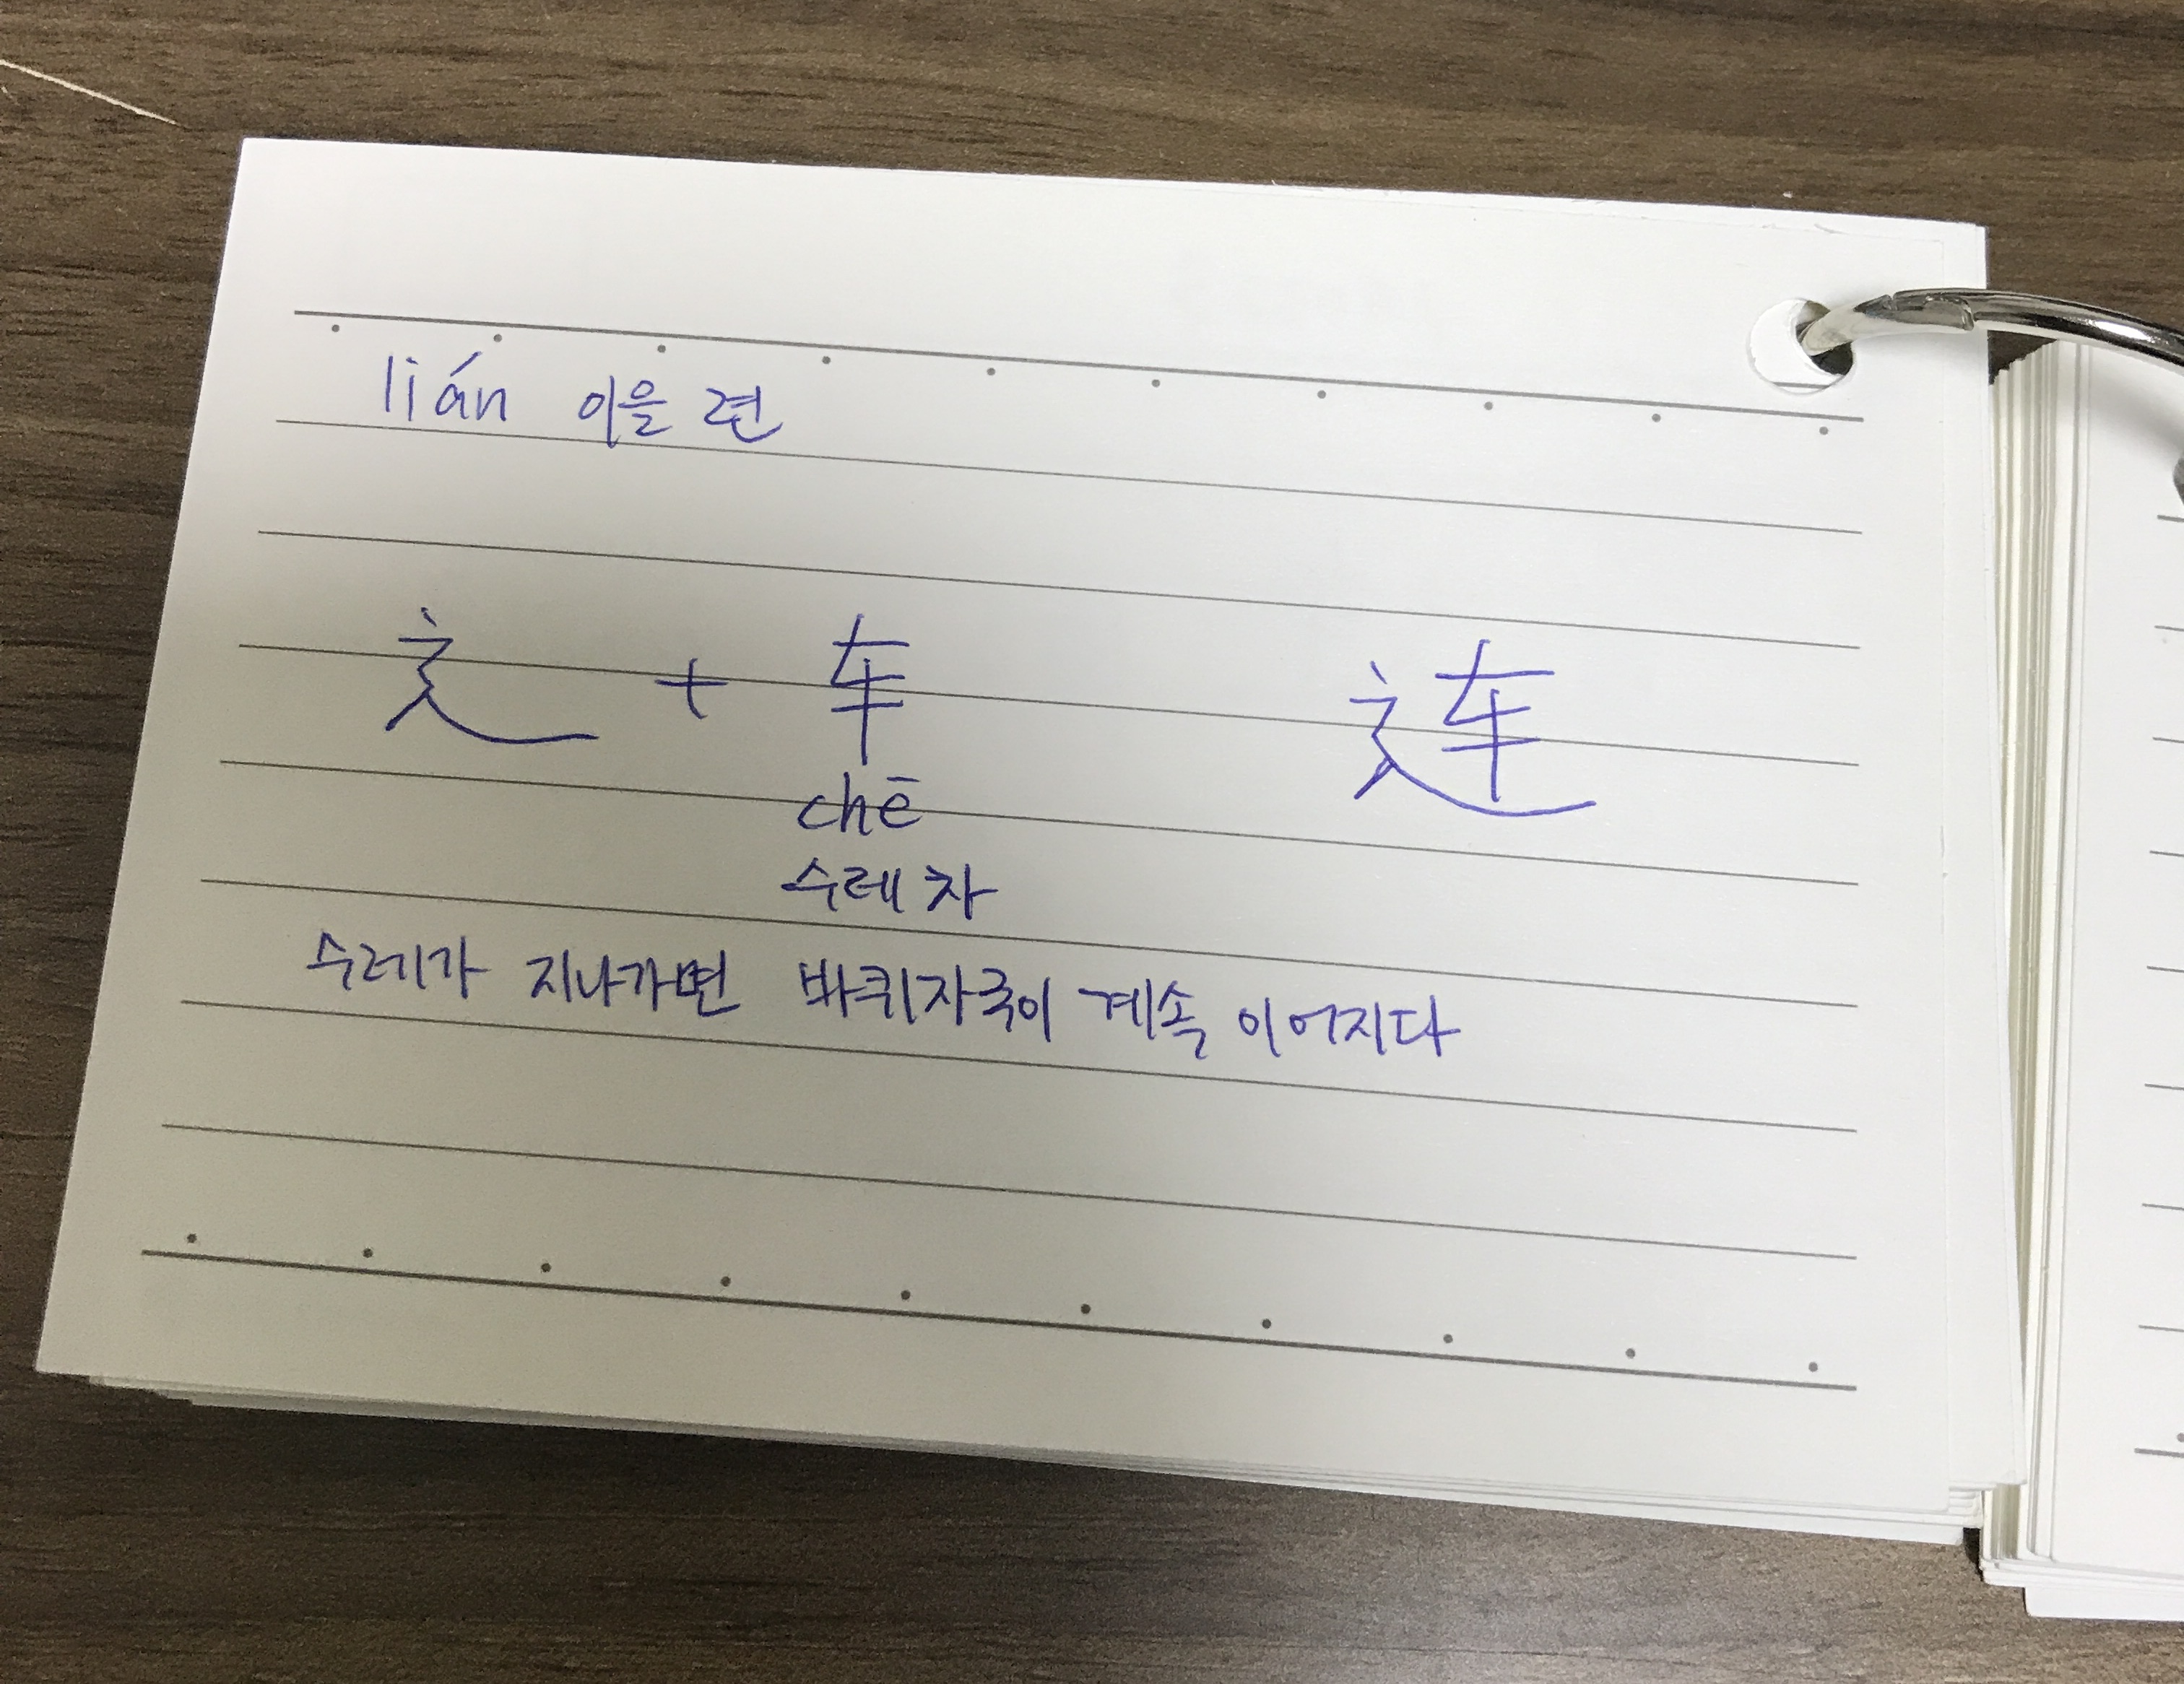 lián 이을 련
辶 + 车 连
chē
수레 차
수레가 지나가면 바퀴자국이 계속 이어지다